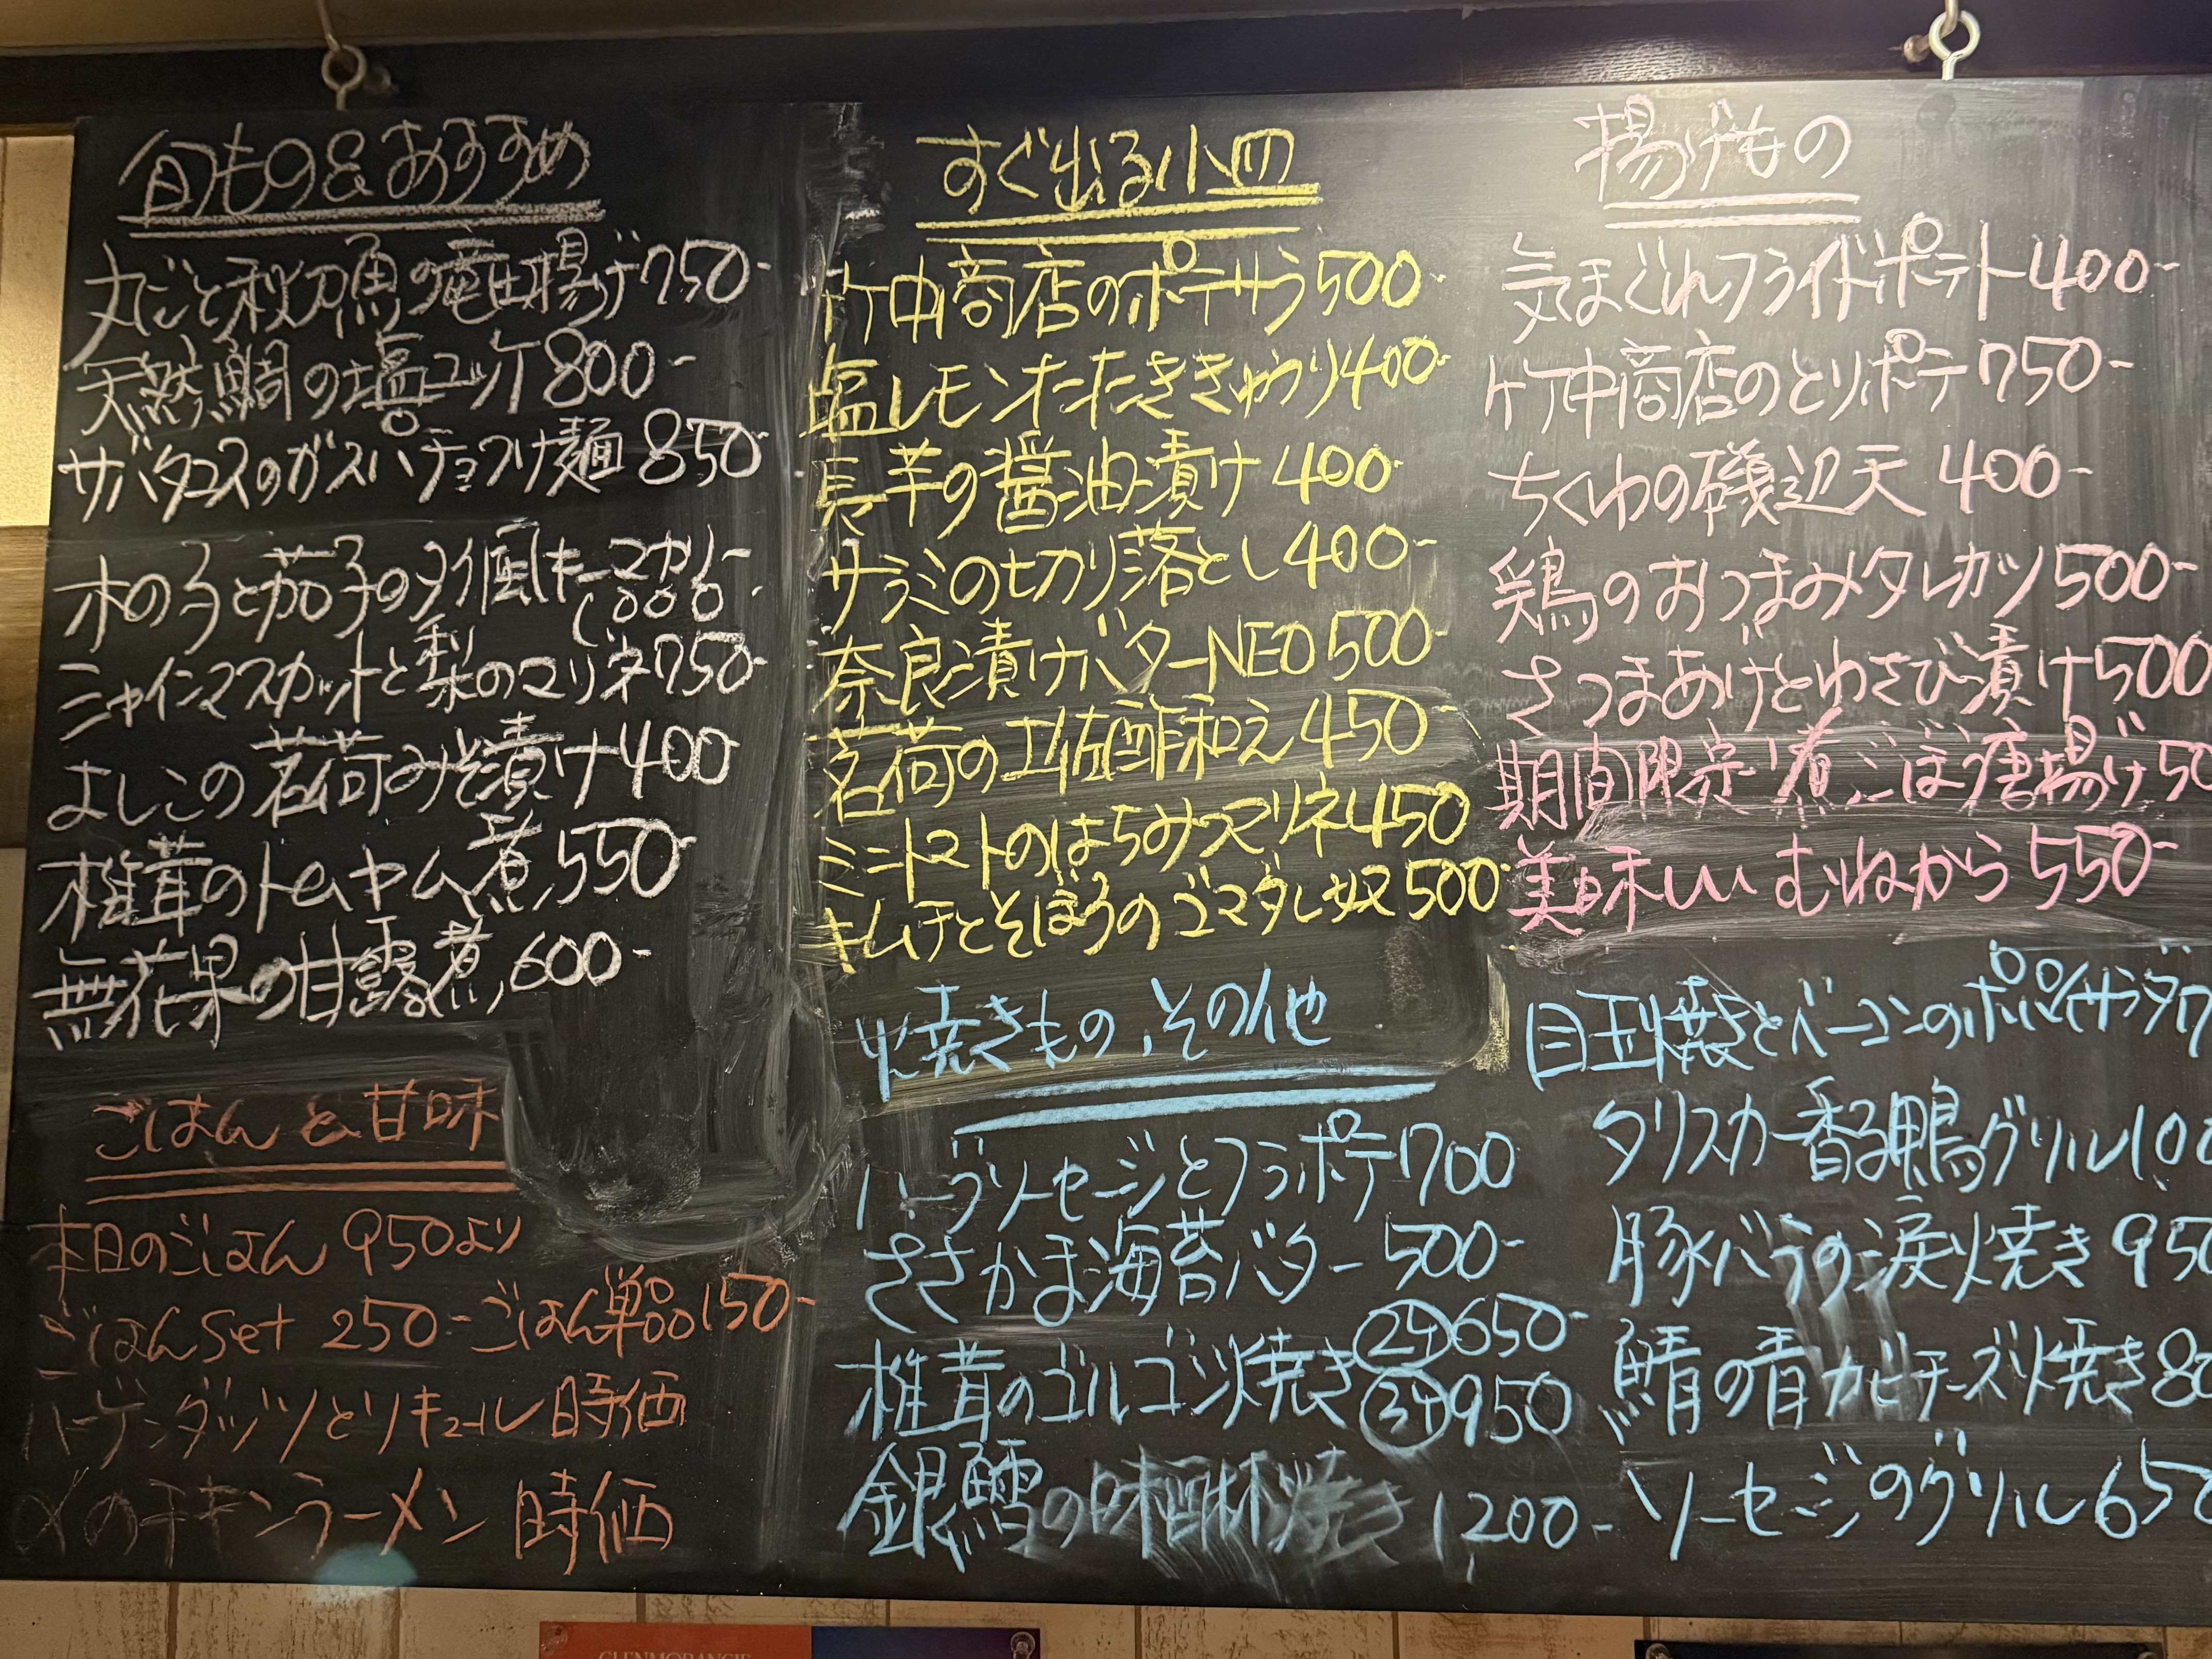 旬もの&おすすめ
丸ごと秋刀魚の竜田揚げ750-
天然鯛の塩ユッケ800-
サバタコスのガスパチョつけ麺850-
木の子と茄子のタイ風キーマカリー
1000-
シャインマスカットと梨のマリネ750-
よしこの茗荷みそ漬け400-
椎茸のトムヤム煮550-
無花果の甘露煮600-
ごはんと甘味
本日のごはん 950より
ごはんSet 250-ごはん単品150-
ハーゲンダッツとリキュール 時価
〆のチキンラーメン 時価
すぐ出る小皿
竹中商店のポテサラ500-
塩レモンたたききゅうり400-
長芋の醤油漬け400-
サラミの切り落とし400-
奈良漬けバターNEO500-
茗荷の土佐酢和え450-
ミニトマトのはちみつマリネ450
キムチとそぼろのゴマダレ奴500-
焼きもの、その他
ハーブソーセージとフラポテ700
ささかま海苔バター500-
椎茸のゴルゴン焼き 2ヶ 650-
3ヶ 950
銀鱈の味醂焼き 1200-
揚げもの
気まぐれフライドポテト400-
竹中商店のとりポテ750-
ちくわの磯辺天400-
鶏のおつまみタレカツ500-
さつまあげとわさび漬け500
期間限定 煮ごぼう唐揚げ50
美味しい むねから550-
目玉焼きとベーコンのポパイサラダ7
タリスカー香る鴨グリル100
豚バラの涙焼き950
鯖の青カビチーズ焼き80
ソーセージのグリル650
GLENMORANGIE